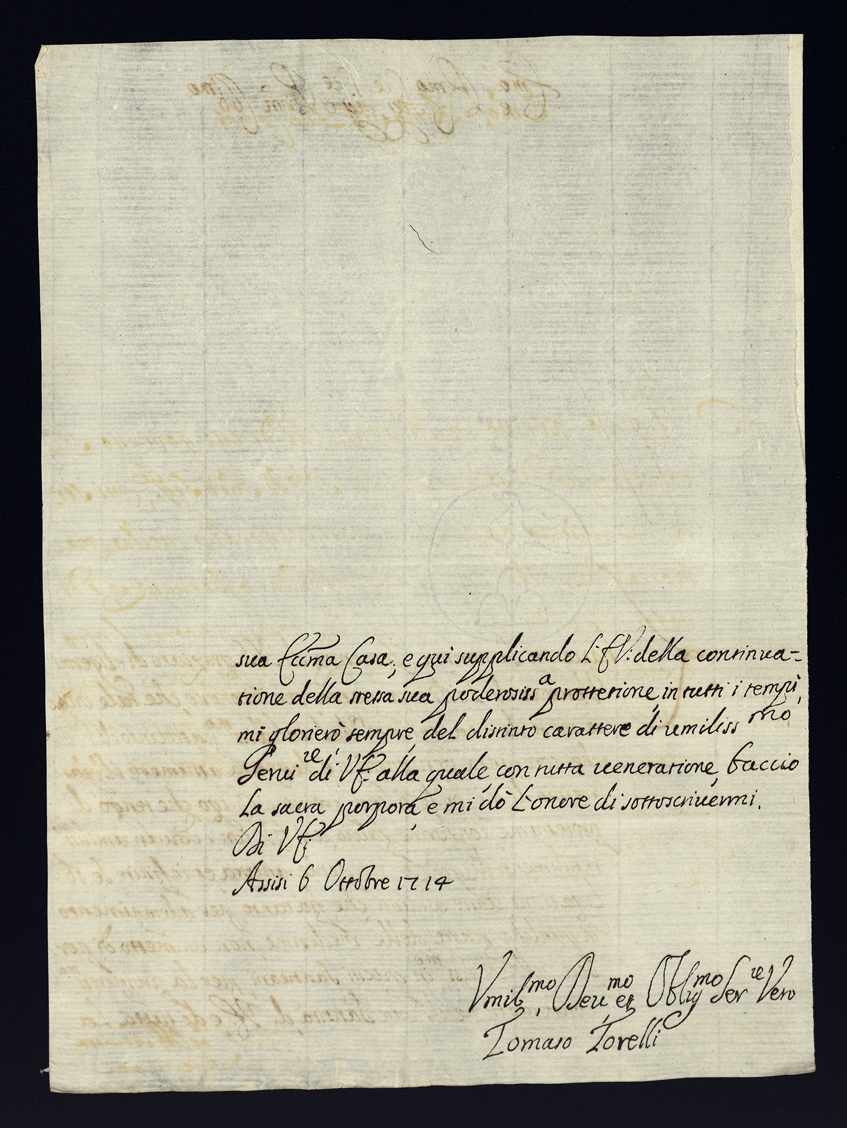 sua Ecc̃ma Casa, e qui supplicando L'E.V: della continua-
tione della stessa sua poderosiss.a protterione, in tutti i tempi,
mi glorierò sempre, del distinto carattere di umiliss.mo
Serui.re di V.E. alla quale, con tutta ueneratione, baccio
La sacra porpora, e mi dò L'onore di sottoscriuermi.
Di V.E:
Assisi 6 Ottobre 1714
Vmil.mo, Deu.mo et Oblig.mo Ser.re Vero
Tomaso Torelli